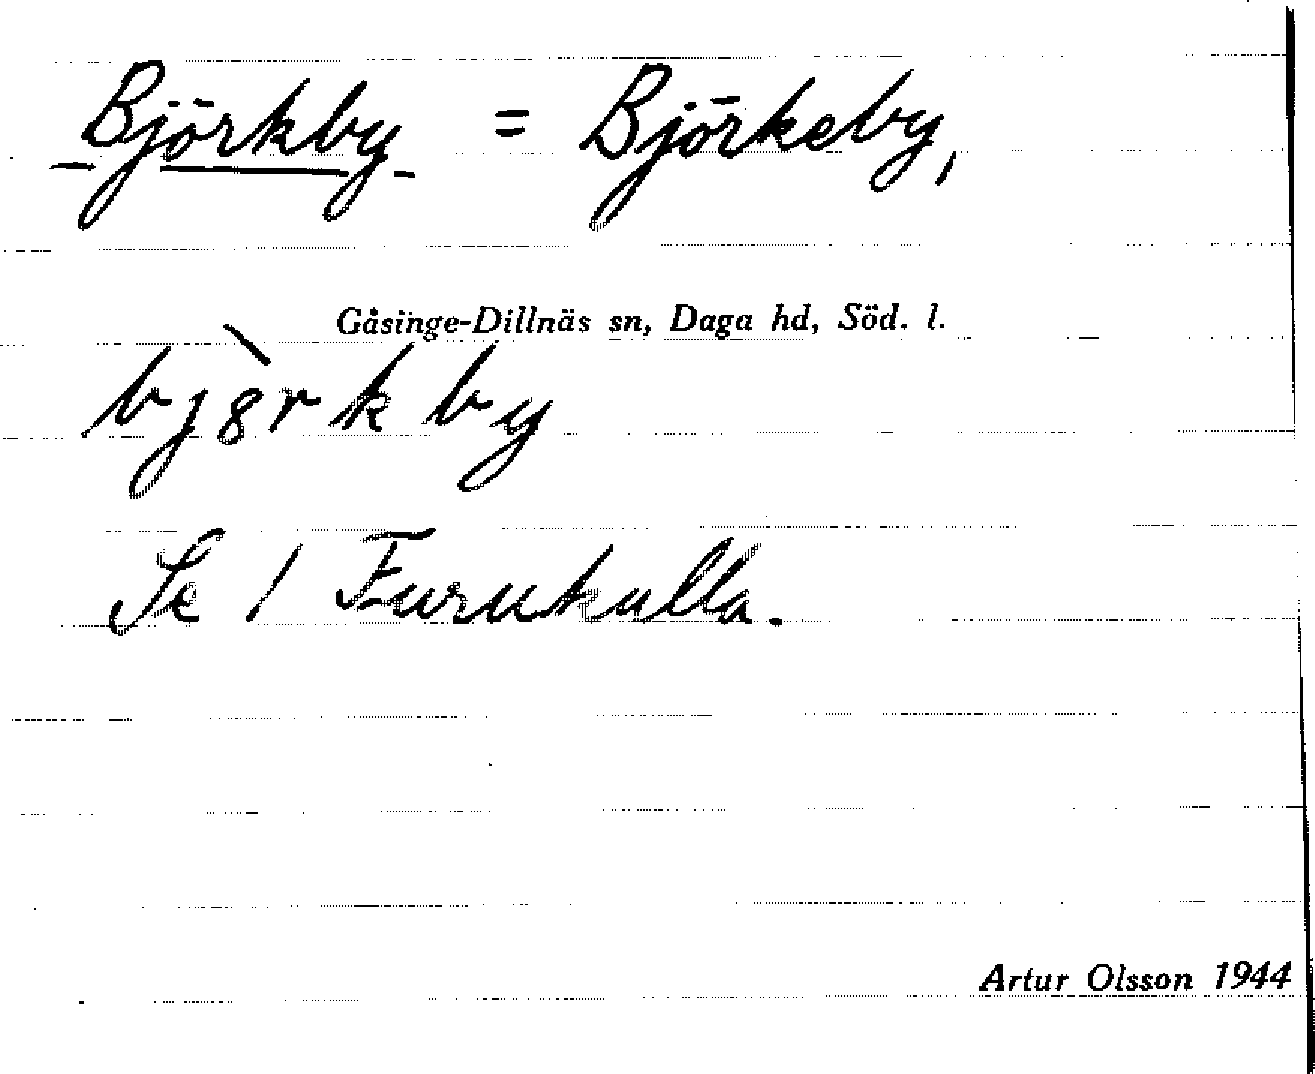 Björkby = Björkeby,
Gåsinge-Dillnäs sn, Daga hd, Söd. l.
bjò̈rkby
Se / Furukulla.
Artur Olsson 1944